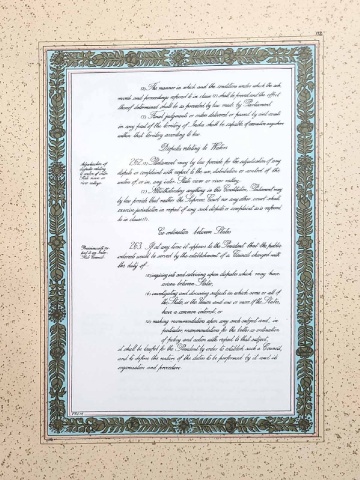 (2) The manner in which and the conditions under which the said records and proceedings referred to in clause (1) shall be proved and the effect thereof determined shall be as provided by law made by Parliament.
(3) Final judgments or orders delivered or passed by civil courts
in any part of the territory of India shall be capable of execution anywhere
within that territory according to law.
Disputes relating to Waters
Adjudication of
disputes relating
to waters of inter-
State rivers or
river valleys.
262. (1) Parliament may by law provide for the adjudication of any
dispute or complaint with respect to the use, distribution or control of the
waters of, or in, any inter-State river or river valley.
(2) Notwithstanding anything in this Constitution, Parliament may
by law provide that neither the Supreme Court nor any other court shall
exercise jurisdiction in respect of any such dispute or complaint as is referred
to in clause (1).
Co-ordination between States
263. If at any time it appears to the President that the public
interests would be served by the establishment of a Council charged with
the duty of—
(a) inquiring into and advising upon disputes which may have
arisen between States;
(b) investigating and discussing subjects in which some or all of
the States, or the Union and one or more of the States,
have a common interest; or
(c) making recommendations upon any such subject and, in
particular, recommendations for the better co-ordination
of policy and action with respect to that subject,
it shall be lawful for the President by order to establish such a Council,
and to define the nature of the duties to be performed by it and its
organisation and procedure.